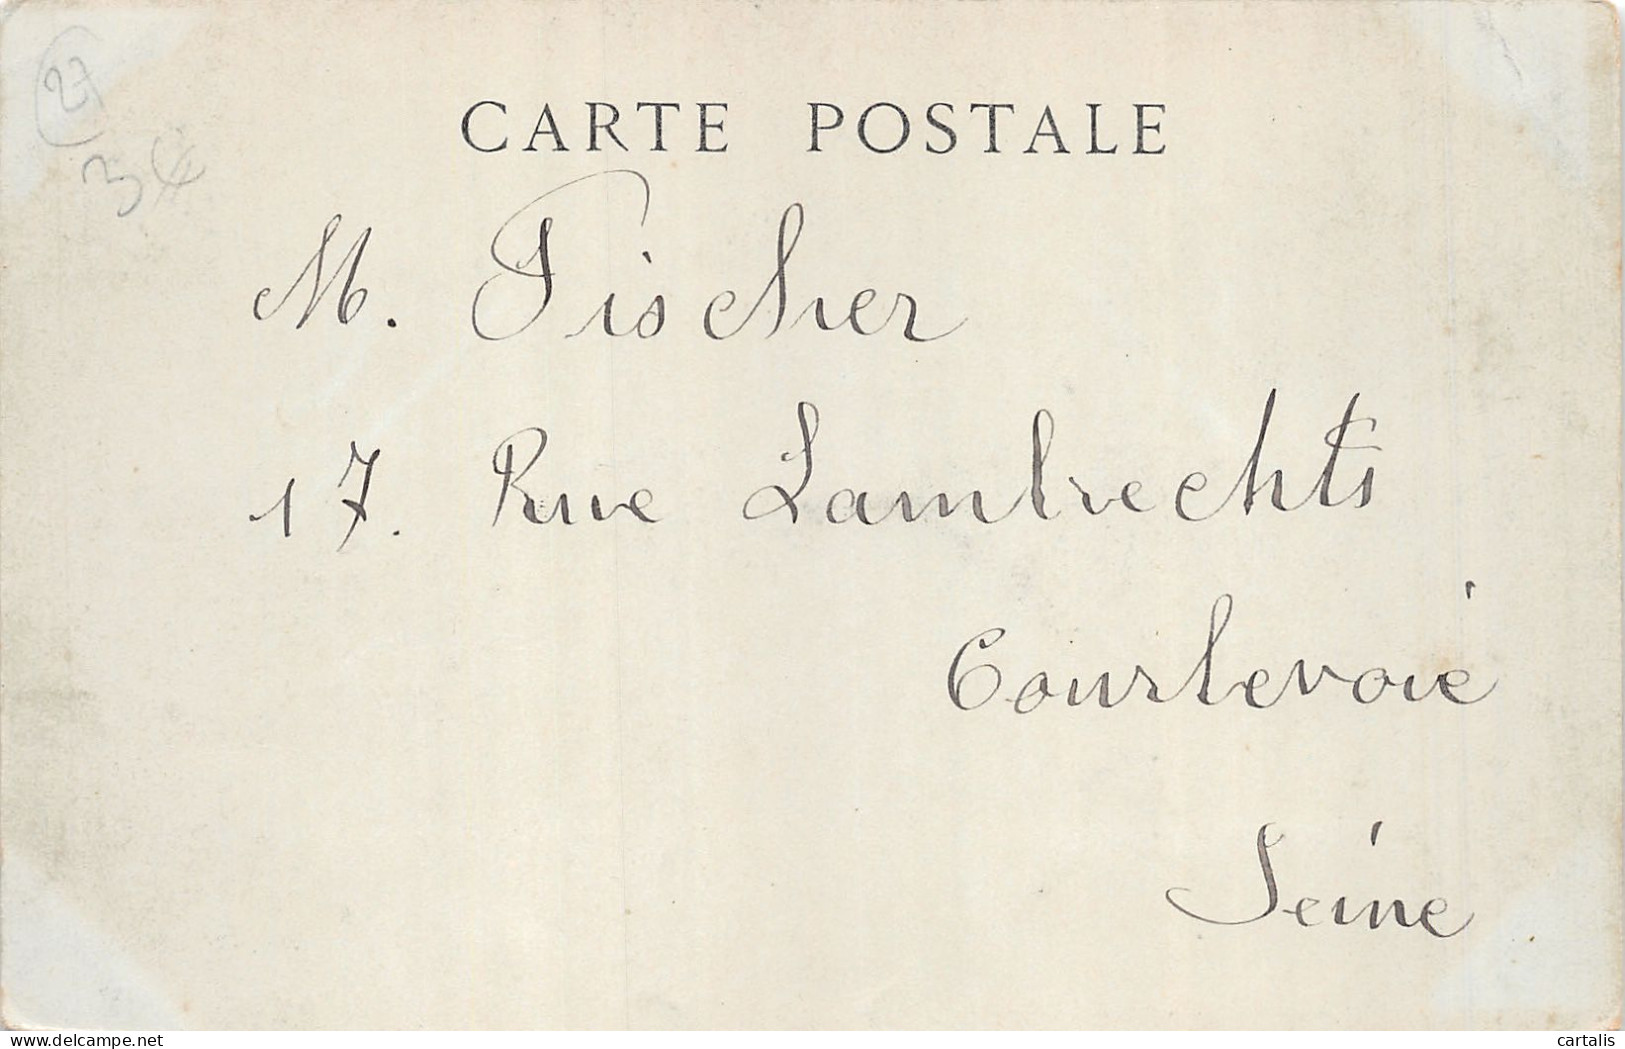 27
3€
CARTE POSTALE
M. Fischer
17. Rue Lambrechts
Courbevoie
Seine
delcampe.net
cartalis